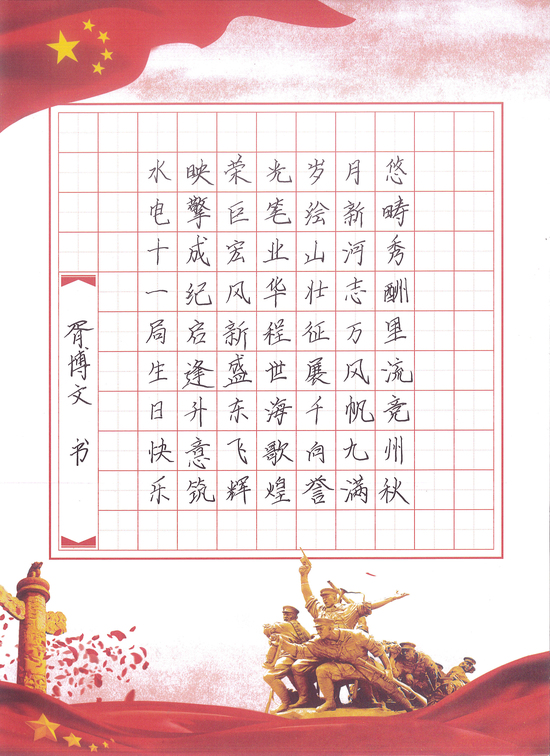 悠畴秀酬里流竞州秋
月新河志万风帆九满
岁绘山壮征展千向誉
光笔业华程世海歌煌
荣巨宏风新盛东飞辉
映擎成纪启逢升意筑
水电十一局生日快乐
胥博文 书